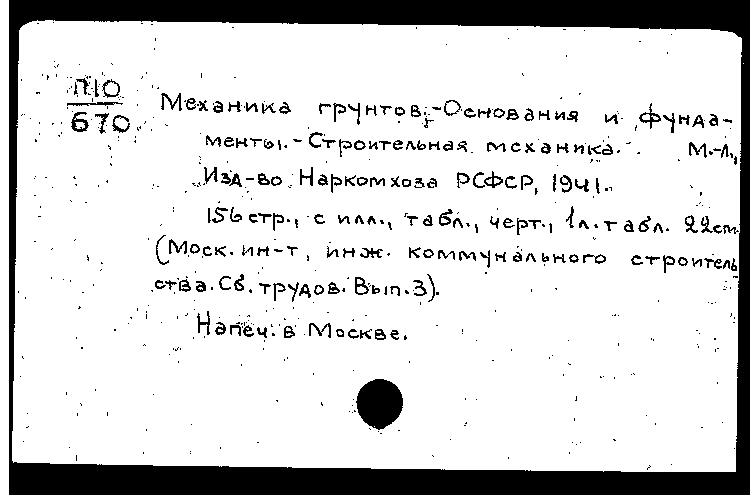 П10
670
Механика грунтов.-Основания и фунда-
менты.-Строительная механика. М.-Л.,
Изд-во Наркомхоза РСФСР, 1941.
156 стр., с илл., табл., черт., 1 л. табл. 22см.
(Моск. ин-т, инж. коммунального строитель
ства. Сб. трудов. Вып.3).
Напеч. в Москве.